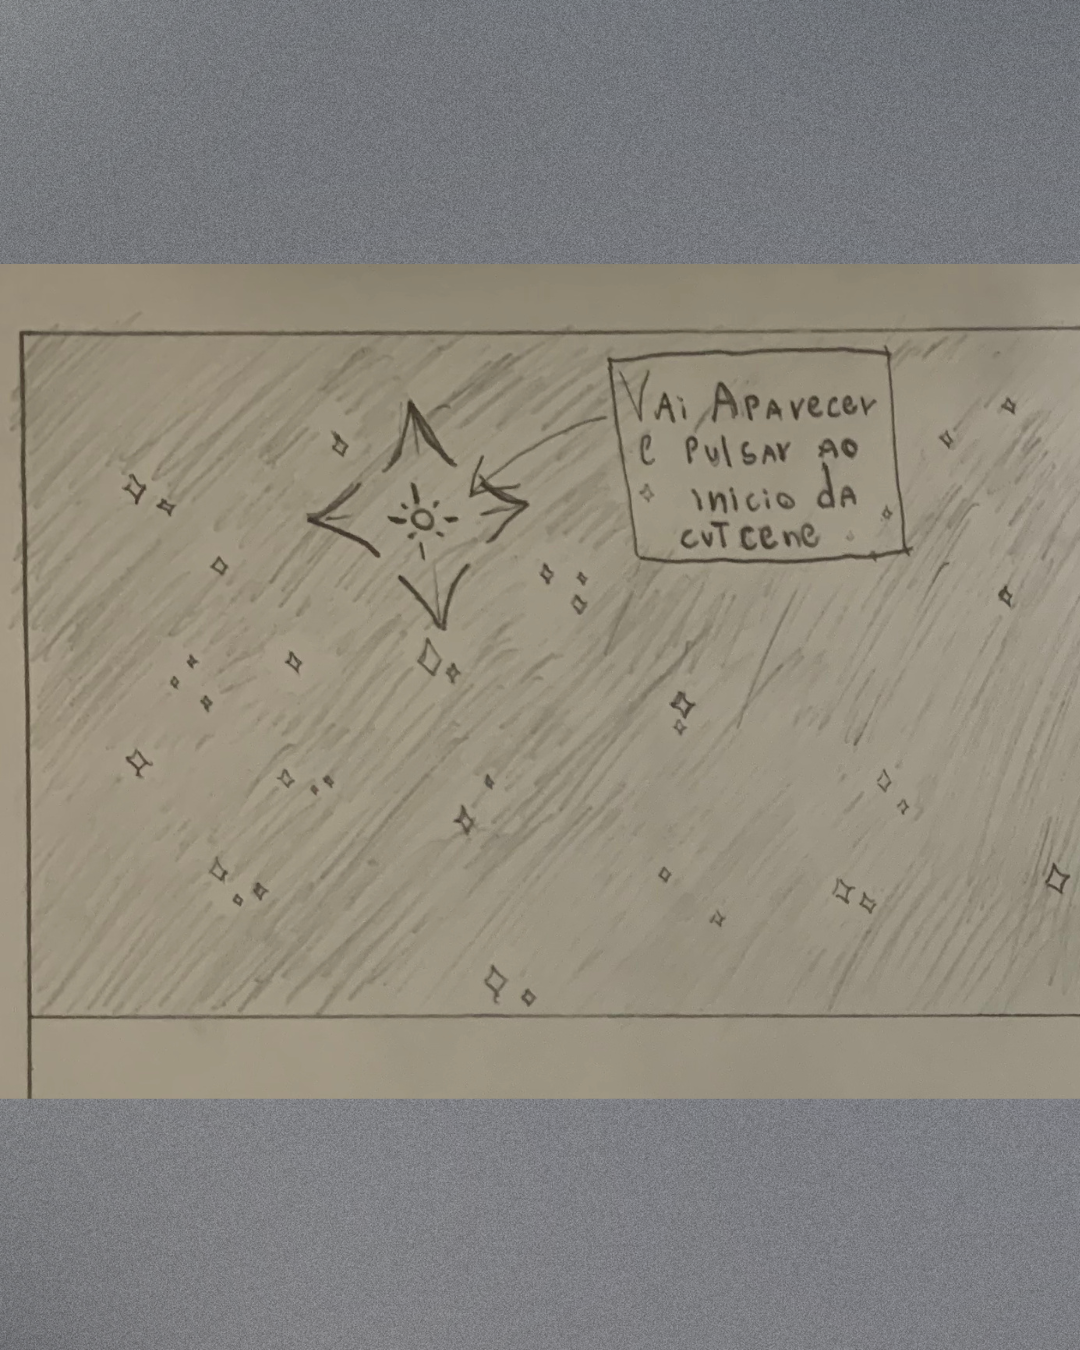 VAi APArecer
e PulSAr AO
inicio dA
cuTcene